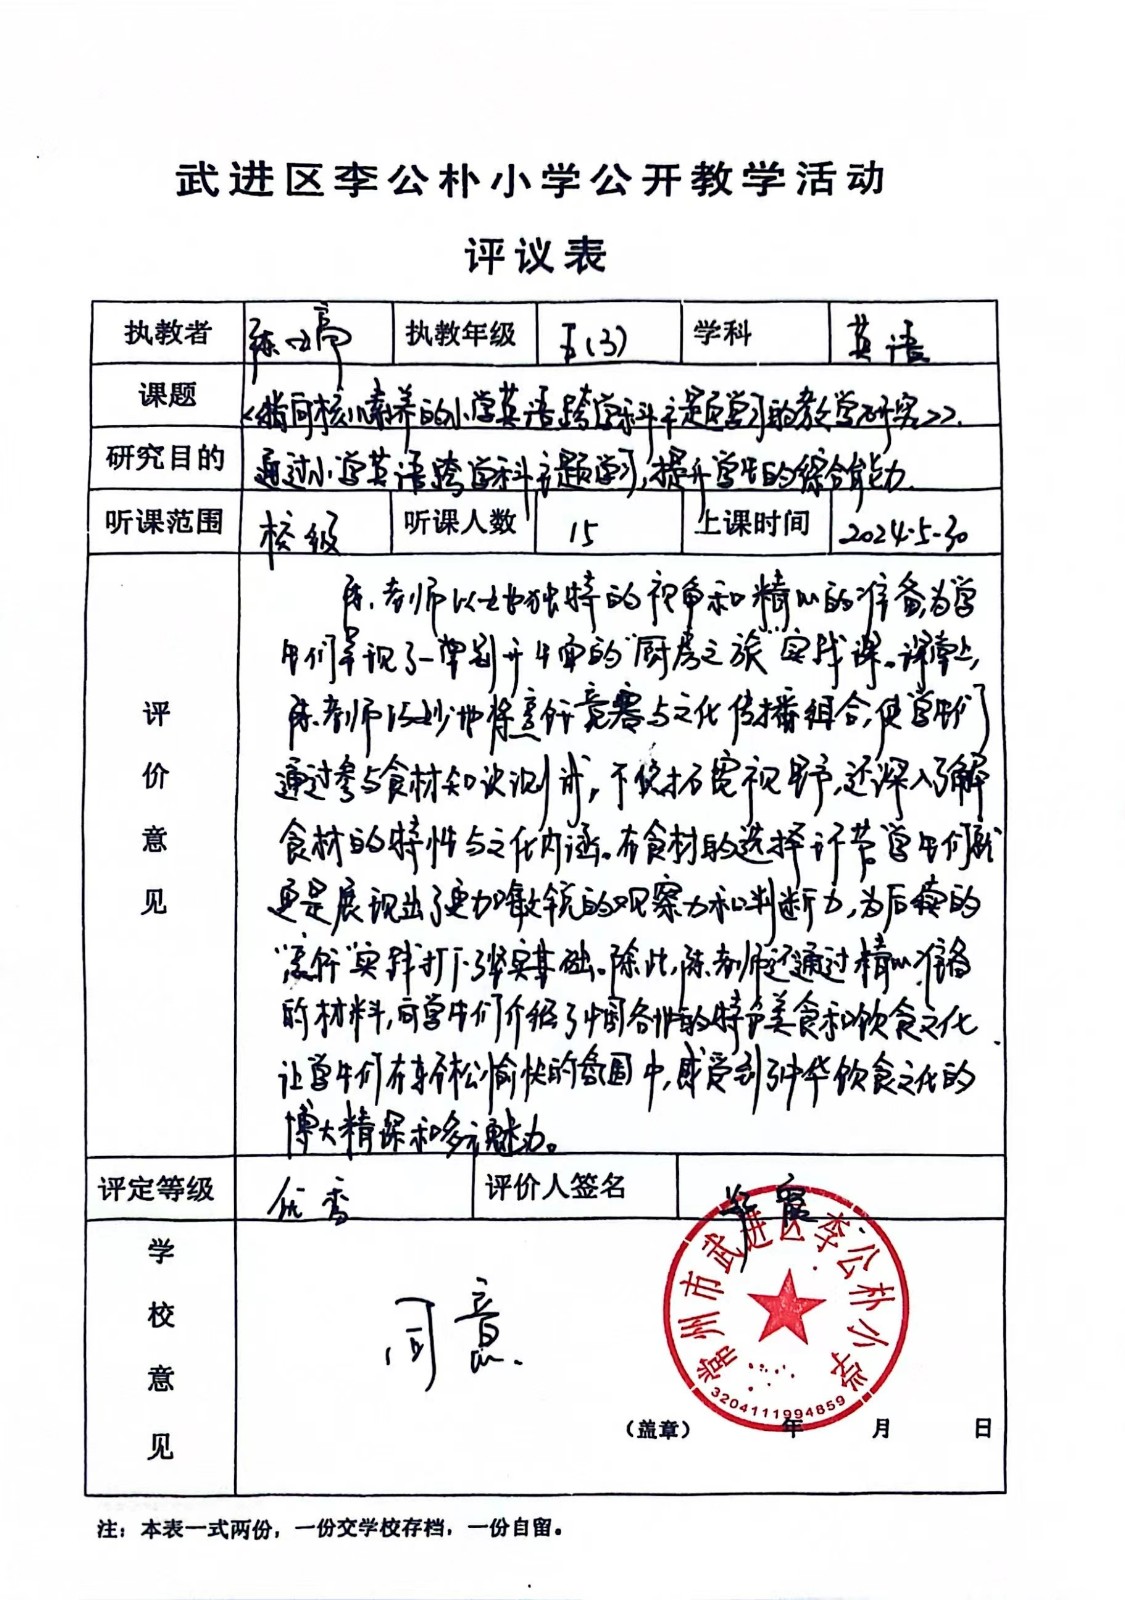 武进区李公朴小学公开教学活动
评议表
执教者 陈 婷 执教年级 五(3) 学科 英语
课题 《指向核心素养的小学英语跨学科主题学习的教学研究》.
研究目的 通过小学英语跨学科主题学习,提升学生的综合能力.
听课范围 校级 听课人数 15 上课时间 2024.5.30
评价意见
陈老师以其独特的视角和精心的准备,为学
生们呈现了一堂别开生面的"厨房之旅"实践课。课堂上,
陈老师巧妙地将烹饪竞赛与文化传播组合,使学生们
通过参与食材知识测试,不仅拓宽视野,还深入了解
食材的特性与文化内涵。在食材的选择环节,学生们
更是展现出了更加敏锐的观察力和判断力,为后续的
"烹饪"实践打下了坚实基础。除此,陈老师还通过精心准备
的材料,向学生们介绍了中国各地的特色美食和饮食文化
让学生们在轻松愉快的氛围中,感受到了中华饮食文化的
博大精深和多元魅力。
评定等级 优秀 评价人签名 霞
学校意见
同意.
常州市武进区李公朴小学
3204111994859
(盖章) 年 月 日
注:本表一式两份,一份交学校存档,一份自留。